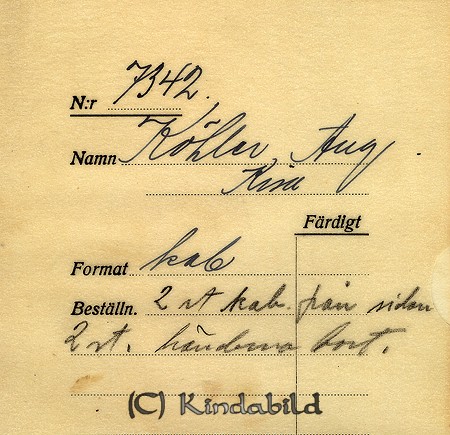 N:r 7342.
Namn Köhler, Aug
Kisa
Färdigt
Format kab
Beställn. 2 st kab. från sidan
2 st. händerna bort.
(C) Kindabild